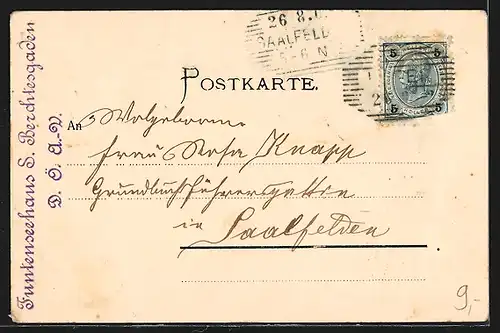 Funtenseehaus S. Berchtesgaden
D. Ö. A.-V.
26 8.
SAALFELD
5-6 N
5 5
5 5
POSTKARTE.
An Wolgeboren
Frau Rosa Knapp
Grundbuchführersgattin
in
Saalfelden
9,-